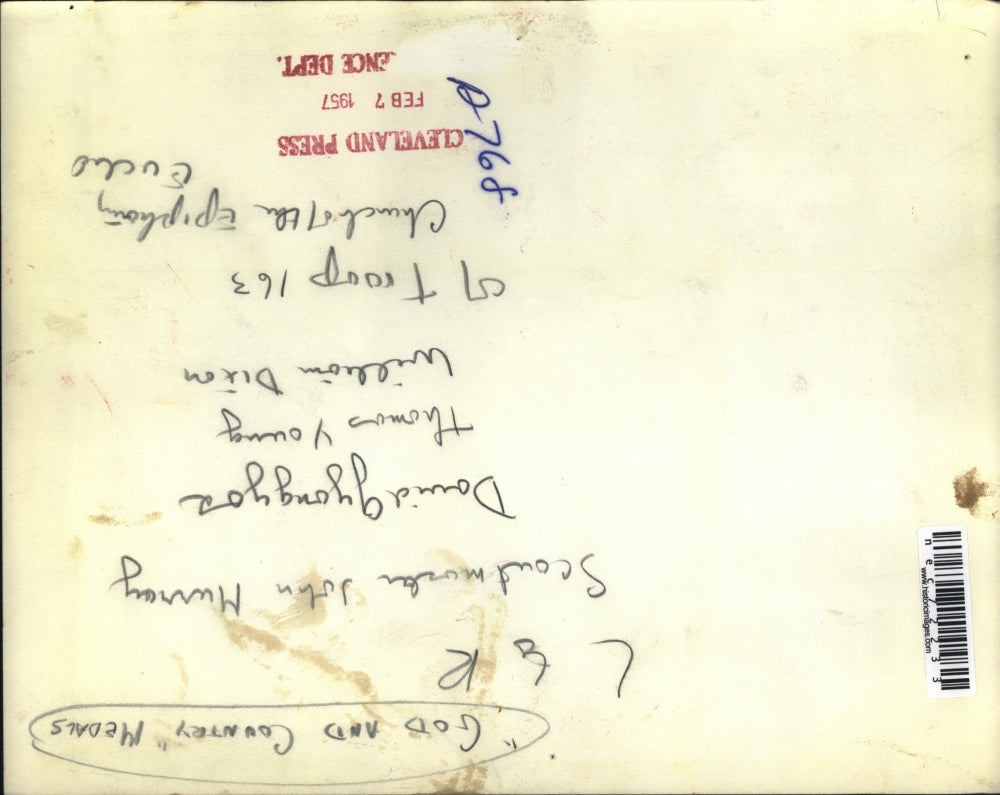 "GOD AND COUNTRY" MEDALS
L to R
Scoutmaster John Murray
David Gyongyos
Thomas Young
William Dixon
of Troop 163
Church of the Epiphany
Euclid
CLEVELAND PRESS
FEB 7 1957
ENCE DEPT.
D-768
www.historicimages.com
nec72233